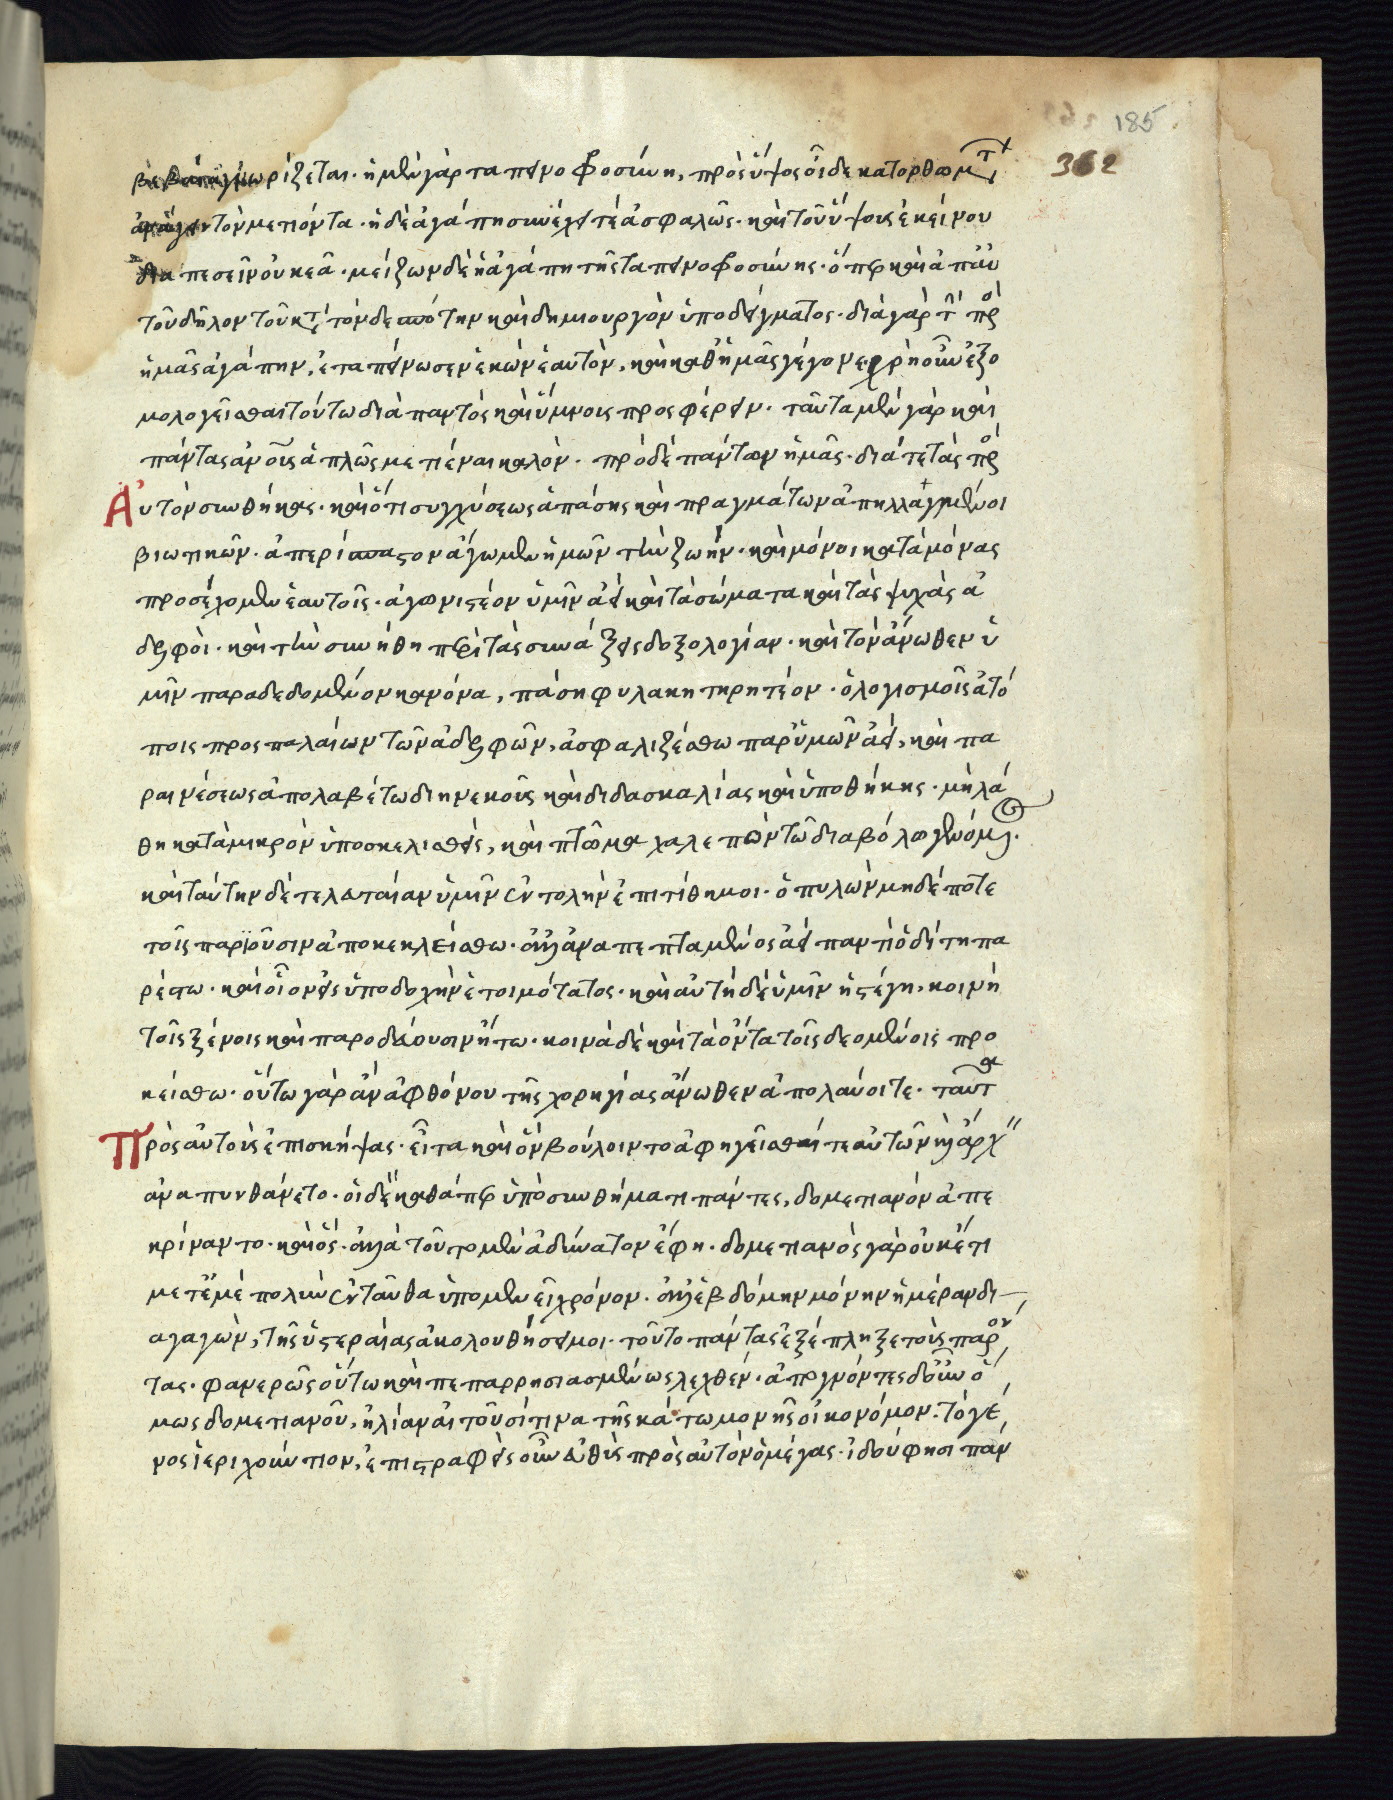 185
362
ρίζεται· ἡ μὲν γὰρ ταπεινοφροσύνη, πρὸς ὕψος οἶδε κατορθωμάτ
τὸν μετιόντα· ἡ δὲ ἀγάπη συνέχει τὲ ἀσφαλῶς· καὶ τοῦ ὕψους ἐκείνου
πεσεῖν οὐκ ἐᾶ· μείζων δὲ ἡ ἀγάπη τῆς ταπεινοφροσύνης· ὅπερ καὶ ἀπ' αὐ
τοῦ δῆλον τοῦ κτ τὸν δεσπότην καὶ δημιουργὸν ὑποδείγματος· διὰ γὰρ τ πρ
ἡμᾶς ἀγάπην, ἐταπείνωσεν ἑκὼν ἑαυτὸν, καὶ καθ' ἡμᾶς γέγονε χρὴ οὖν ἐξο
μολογεῖσθαι τούτω διὰ παντὸς καὶ ὕμνους προσφέρειν· ταῦτα μὲν γὰρ καὶ
πάντας ἀνοις ἁπλῶς μετιέναι καλὸν· πρὸ δὲ πάντων ἡμᾶς· διά τε τὰς πρ
Αὐτὸν συνθήκας· καὶ ὅτι συγχύσεως ἁπάσης καὶ πραγμάτων ἀπηλλαγμένοι
βιωτικῶν· ἀπερίσπαστον ἄγωμεν ἡμῶν τὴν ζωήν· καὶ μόνοι κατὰ μόνας
προσέχομεν ἑαυτοῖς· ἀγωνιστέον ὑμῖν ἀεὶ καὶ τὰ σώματα καὶ τὰς ψυχὰς ἀ
δελφοὶ· καὶ τὴν συνήθη περὶ τὰς συνάξεις δοξολογίαν· καὶ τὸν ἄνωθεν ὑ
μῖν παραδεδομένον κανόνα, πάση φυλακη τηρητέον· ὁ λογισμοῖς ἀτό
ποις προσπαλαίων τῶν ἀδελφῶν, ἀσφαλιζέσθω παρ' ὑμῶν ἀεί, καὶ πα
ραινέσεως ἀπολαβέτω διηνεκοῦς καὶ διδασκαλίας καὶ ὑποθήκης· μὴ λά
θη κατὰ μικρὸν ὑποσκελισθεὶς, καὶ πτῶμα χαλεπὸν τῶ διαβόλω γενόμ.
καὶ ταύτην δὲ τελευταίαν ὑμῖν ἐντολὴν ἐπιτίθημοι· ὁ πυλὼν μηδέποτε
τοῖς παριοῦσιν ἀποκεκλείσθω· ἀλλ' ἀναπεπταμένος ἀεὶ παντὶ ὁδίτη πα
ρέστω· καὶ οἷον εἰς ὑποδοχὴν ἑτοιμότατος· καὶ αὐτὴ δὲ ὑμῖν ἡ στέγη, κοινὴ
τοῖς ξένοις καὶ παροδεύουσιν ἤτω· κοινὰ δὲ καὶ τὰ ὄντα τοῖς δεομένοις προ
κείσθω· οὕτω γὰρ ἂν ἀφθόνου τῆς χορηγίας ἄνωθεν ἀπολαύοιτε· ταῦτα
Πρὸς αὐτοὺς ἐπισκήψας· εἶτα καὶ ὃν βούλοιντο ἀφηγεῖσθαί τε αὐτῶν καὶ ἄρχ
ἀναπυνθάνετο· οἱ δὲ καθάπερ ὑπὸ συνθήματι πάντες, δομετιανὸν ἀπε
κρίναντο· καὶ ὃς· ἀλλὰ τοῦτο μὲν ἀδύνατον ἔφη· δομετιανὸς γὰρ οὐκέτι
μετ' ἐμὲ πολὺν ἐνταῦθα ὑπομενεῖ χρόνον· ἀλλ' ἑβδόμην μόνην ἡμέραν δι
αγαγὼν, τῆς ὑστεραίας ἀκολουθήσει μοι· τοῦτο πάντας ἐξέπληξε τοὺς παρόν
τας· φανερῶς οὕτω καὶ πεπαρρησιασμένως λεχθέν· ἀπογνόντες δ' οὖν ὅ
μως δομετιανοῦ, ἠλίαν αἰτοῦσί τινα τῆς κάτω μονῆς οἰκονόμον· τὸ γέ
νος ἱεριχούντιον, ἐπιστραφεὶς οὖν εὐθὺς πρὸς αὐτὸν ὁ μέγας· ἰδοὺ φησι παν